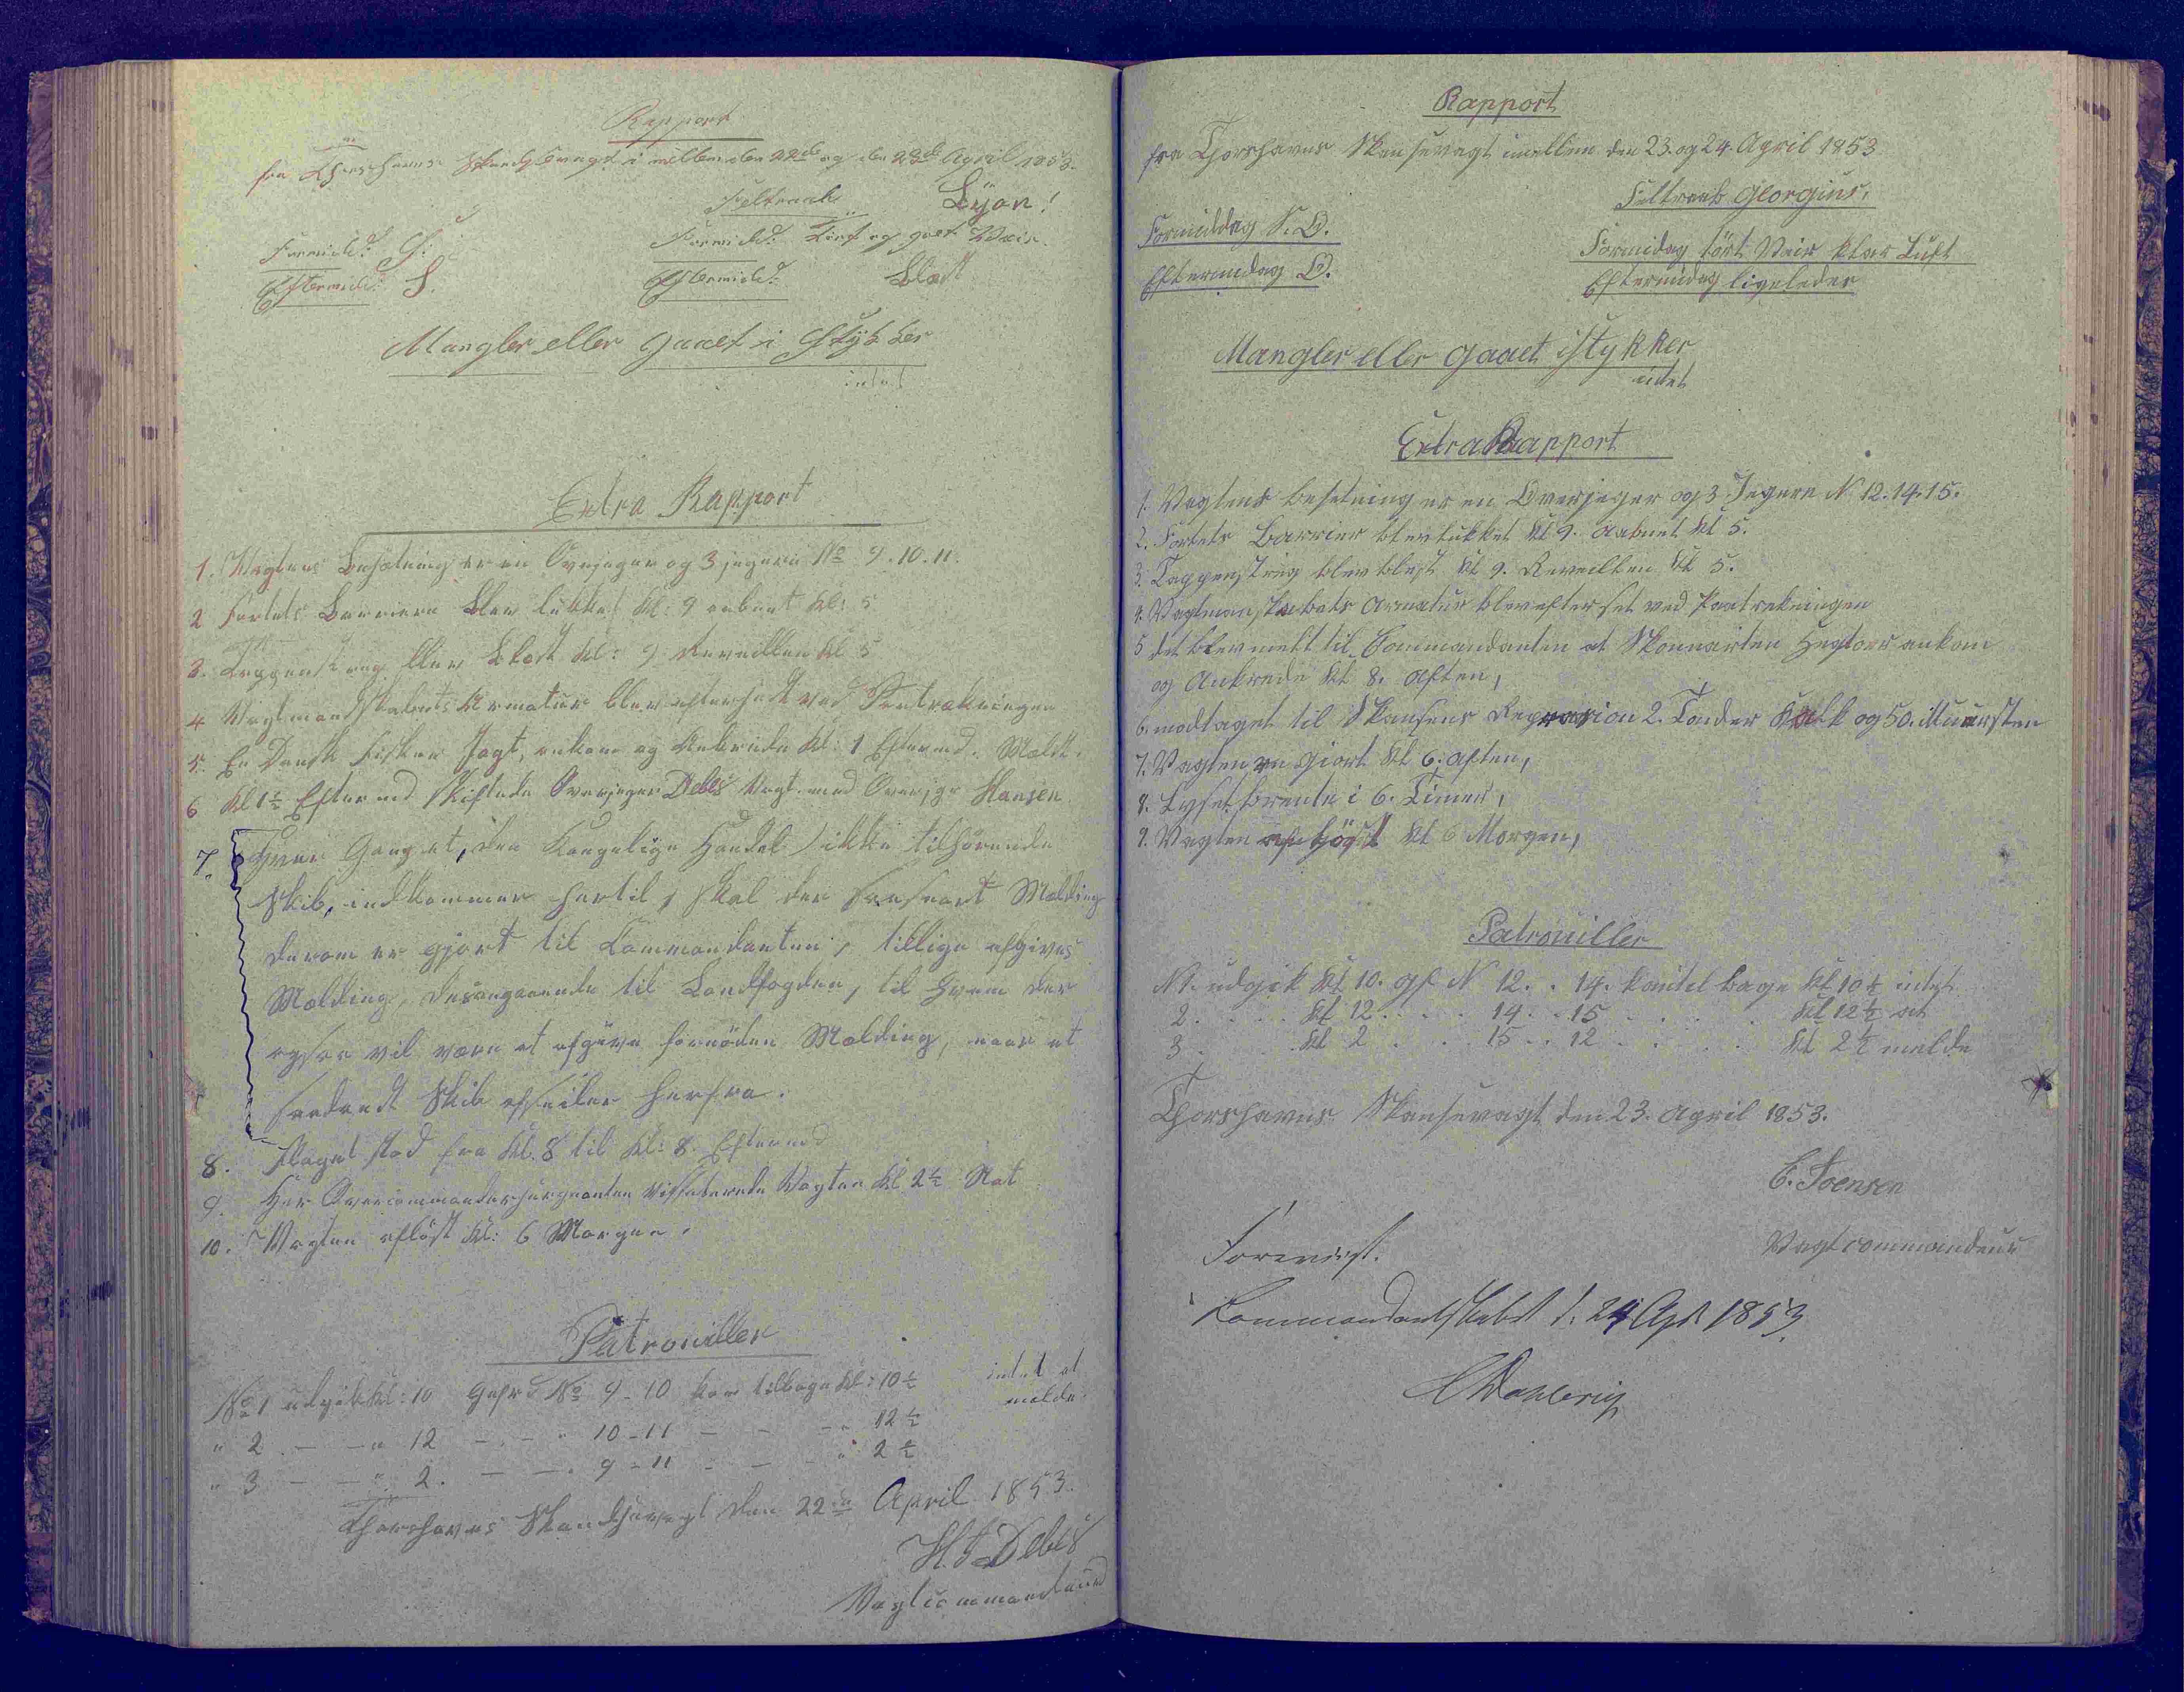 Rapport
fra Thorshavns Skandsevagt i mellem den 22de og den 23de April 1853.
Feltraab Lyon!
Formidd: S:
Formidd: Tört og godt Veir.
Eftermidd: S.
Eftermidd: Blæst
Mangler eller gaaet i Stykker
intet
Extra Rapport
1. Vagtens Besætning er en Overjæger og 3 jægere No 9. 10. 11.
2 Fortets Barriere blev lukket Kl: 9 aabnet Kl: 5
3. Tappenstreg blev blæst Kl: 9 Reveillen Kl 5
4 Vagtmandskabets Armatur blev efterseet ved Paatrækningen
5. En Dansk Fisker Jagt, ankom og Ankrede Kl: 1 Eftermd. Mældt.
6 Kl 1½ Eftermd skiftede Overjæger Debes Vagt med Overjgr Hansen
7. Hver Gang et, den Kongelige Handel ikke tilhörende
Skib, indkommer hertil, skal der saasnart Mælding
derom er gjort til Commandanten, tillige afgives
Mælding, desangaaende til Landfogden, til hvem der
ogsaa vil være at afgive fornöden Mælding, naar et
saadandt Skib afseiler herfra.
8. Flaget stod fra Kl. 8 til Kl: 8 Eftermd
9. Her Overcommandersergeanten visiterede Vagten Kl 2½ Nat
10. Vagten aflöst Kl: 6 Morgen.
Patrouiller
No 1 udgik Kl: 10 Gefr No 9 - 10 kom tilbage Kl: 10½ intet at
melde.
" 2 — — " 12 — . — " 10 - 11 — — — " 12½
" 3 — — " 2. — — . 9 - 11 — — " 2½
Thorshavns Skandsevagt den 22de April 1853.
H. J. Debes
Vagtcommandeur
Rapport
fra Thorshavns Skansevagt imellem den 23. og 24. April 1853
Feltraab Georgius.
Formiddag S. O.
Formidag tört Veir klar Luft
Eftermidag O.
Eftermidag ligeledes
Mangler eller gaaet istykker
intet
Extra Rapport
1. Vagtens besetning er en Overjeger og 3 Jegere N 12. 14. 15.
2. Fortets Barrier blev lukket Kl 9. aabnet Kl 5.
3. Tappenstreg blev blest Kl 9. Reveillen Kl 5.
4. Vagtmanskabets Armatur blev efterset ved Paatrekningen
5 det blev meldt til Commandanten at Skonnarten Hester ankom
og Ankrede Kl 8. aften,
6. modtaget til Skansens Reprasion 2. Tønder Kalk og 50. Muursten
7. Vagten ren giort Kl 6. aften,
8. Lyset brente i 6. Timer,
9. Vagten aflöst Kl 6 Morgen,
Patrouiller
N 1. udgik Kl 10. gf. N 12. . 14. kom tilbage Kl 10½ intet
2. . . . Kl 12. . . . 14. . 15 . . . . Kl 12½ at
3 . . . . Kl 2 . . . 15 . . 12 . . . . Kl 2½ melde
Thorshavns Skansevagt den 23. April 1853.
C. Joensen
Vagtcommandeur
Foreviist.
Commandantskabet d. 24 Apr 1853.
CDahlerup